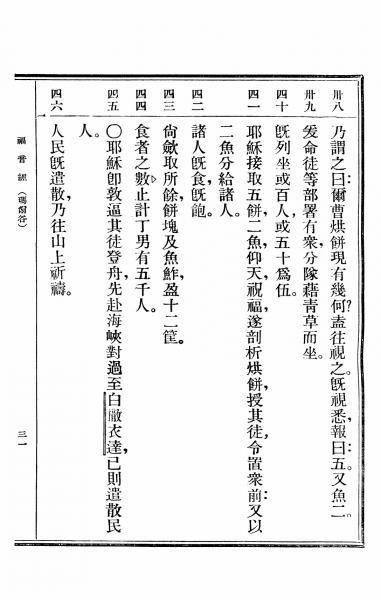 卅八 乃謂之曰：爾曹烘餅現有幾何？盍往視之。旣視悉，報曰：五。又魚二。
卅九 爰命徒等部署有衆，分隊藉靑草而坐。
四十 旣列坐或百人，或五十爲伍。
四一 耶穌接取五餅二魚，仰天祝福，遂剖析烘餅，授其徒，令置衆前：又以
二魚分給諸人。
四二 諸人旣食，旣飽。
四三 尙斂取所餘餅塊及魚鮓，盈十二筐。
四四 食者之數，止計丁男有五千人。
四五 〇耶穌卽敦逼其徒登舟，先赴海峽對過至白撒衣達，已則遣散民
人。
四六 人民旣遣散，乃往山上祈禱。
福音經（瑪爾谷） 三一